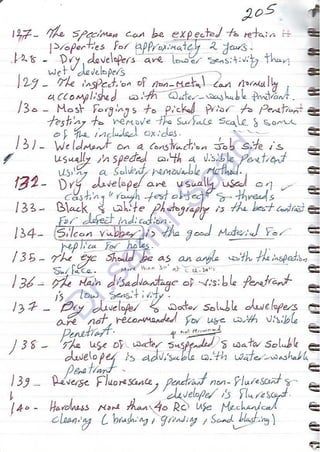 205
127- The specimen can be expected to retain it
properties for approximately 2 years.
128- Dry developers are lower sensitivity than
wet developers
129- The inspection of non-metal can normally
accomplished with water-washable penetrant.
130- Most Forgings to picked Prior to Penetrant
testing to remove the surface scale & some
of the included oxides.
131- Weldment on a construction Job site is
usually inspected with a visible Penetrant
using a solvent removable method.
132- Dry developer are usually used on
casting rough test object & threads
133- Black & white photography is the best contrast
For defect indication.
134- Silicon rubber is the good Material For
replica for holes.
135- The eye should be as an angle with the inspection
surface. more than 30° at
136- The Main disadvantage of visible Penetrant
is low sensitivity.
137- Dry developer & water soluble developers
are not recommended for use with visible
Penetrant.
138- The use of water suspended & water soluble
developer is advisable with water-washable
Penetrant.
139- Reverse Fluorescence, penetrant non-Flurescent &
developer is flurescent.
140- Hardness more than 40 Rc use Mechanical
cleaning (brushing, grinding, Sand blasting)